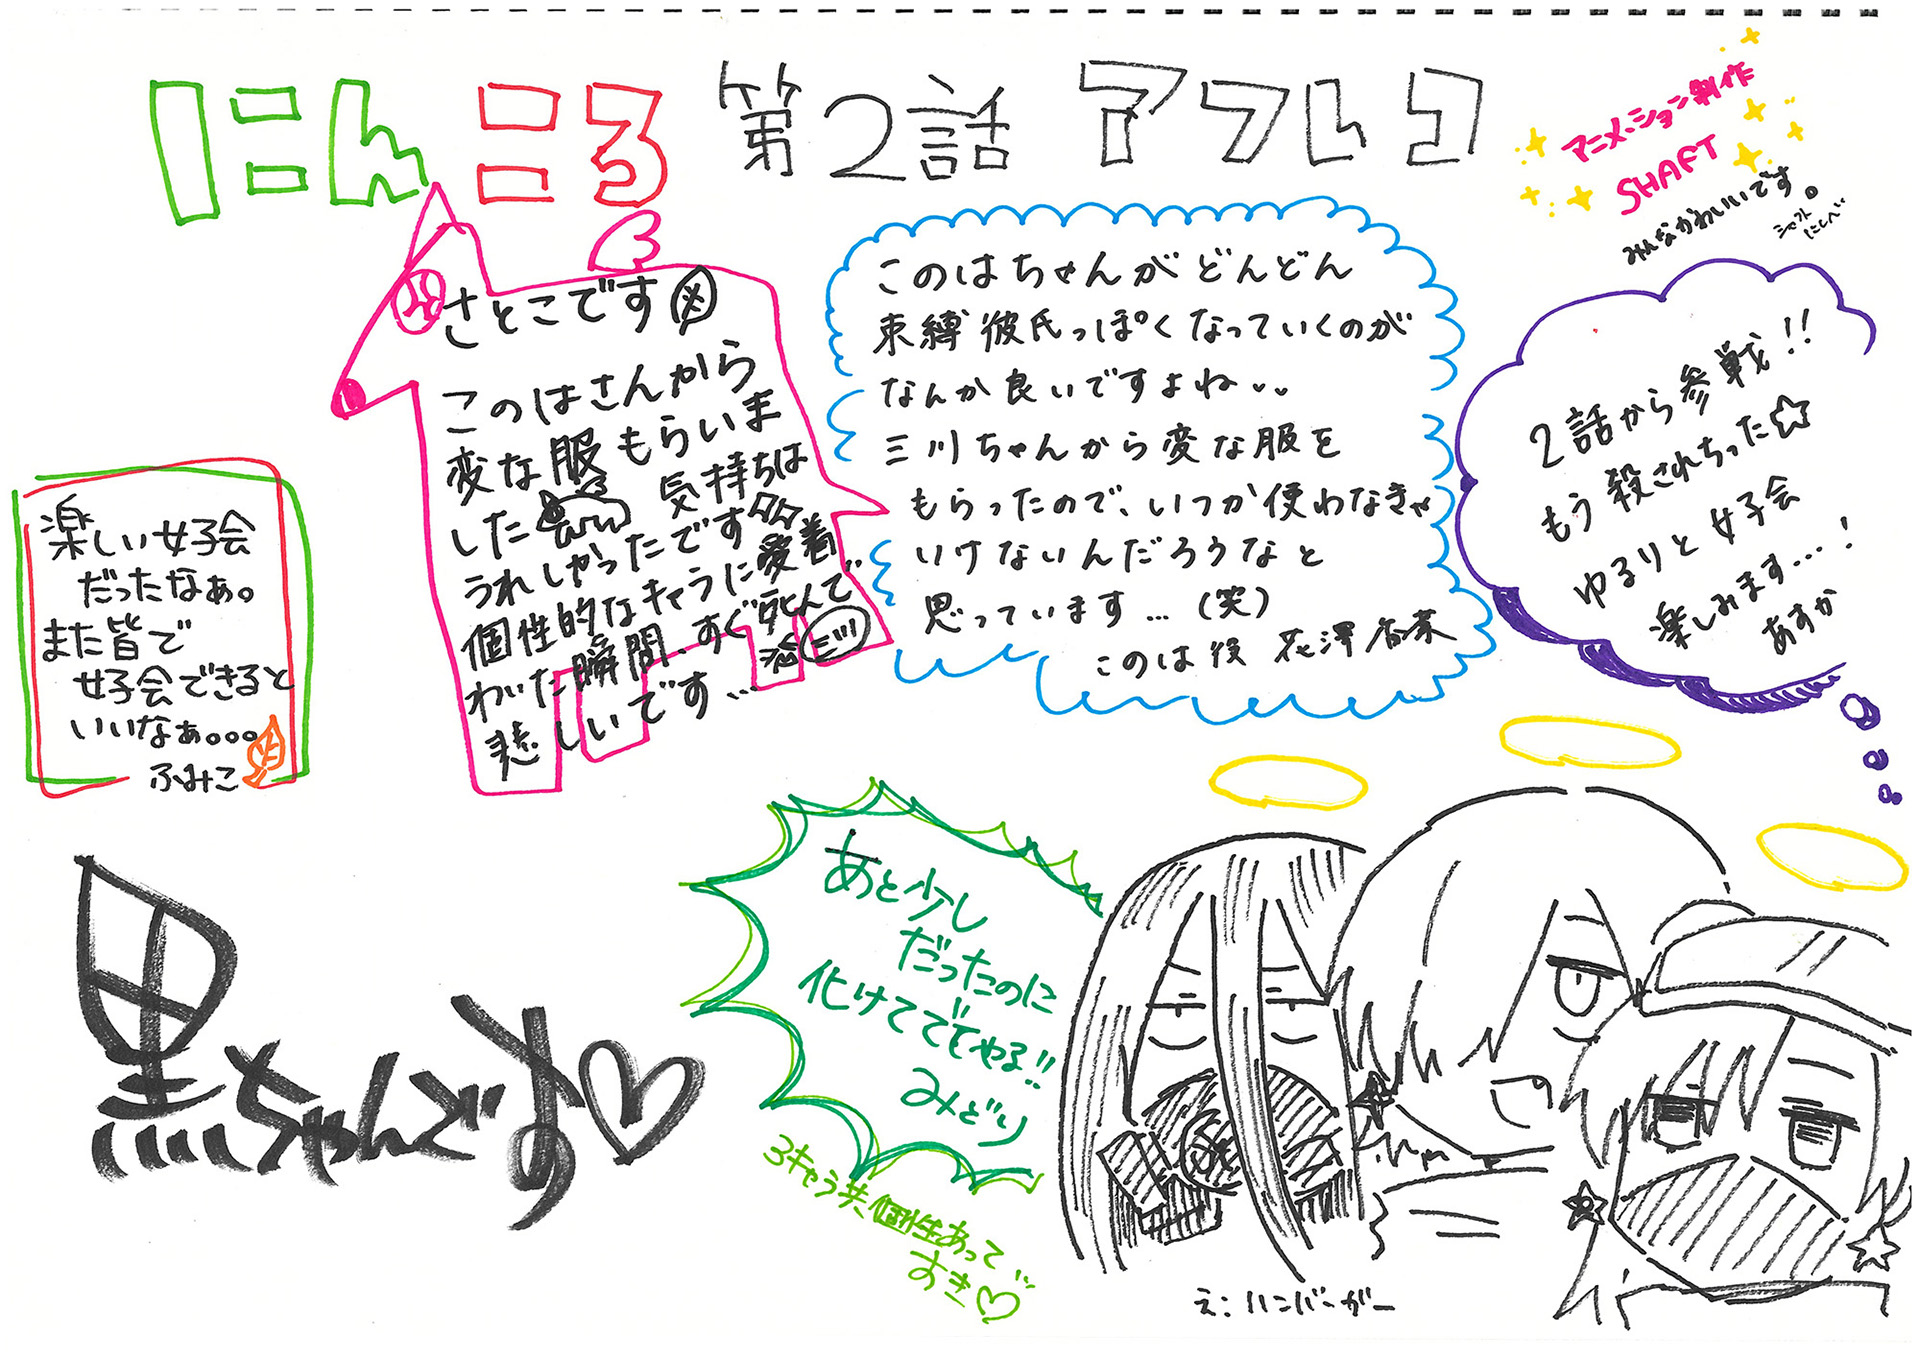 にんころ 第2話 アフレコ
アニメーション制作
SHAFT
みんなかわいいです。
さとこです
このはさんから
変な服もらいま
した 気持ちは
うれしかったです
個性的なキャラに愛着
わいた瞬間、すぐ死んで
悲しいです…
このはちゃんがどんどん
束縛彼氏っぽくなっていくのが
なんか良いですよね
三川ちゃんから変な服を
もらったので、いつか使わなきゃ
いけないんだろうなと
思っています…(笑)
このは役 花澤香菜
2話から参戦!!
もう殺されちった☆
ゆるりと女子会
楽しみます…!
あすか
楽しい女子会
だったなぁ。
また皆で
女子会できると
いいなぁ。。。
ふみこ
黒ちゃんです♡
あと少し
だったのに
化けてでてやる!!
みどり
3キャラ共、個性あって
すき♡
え:ハンバーガー